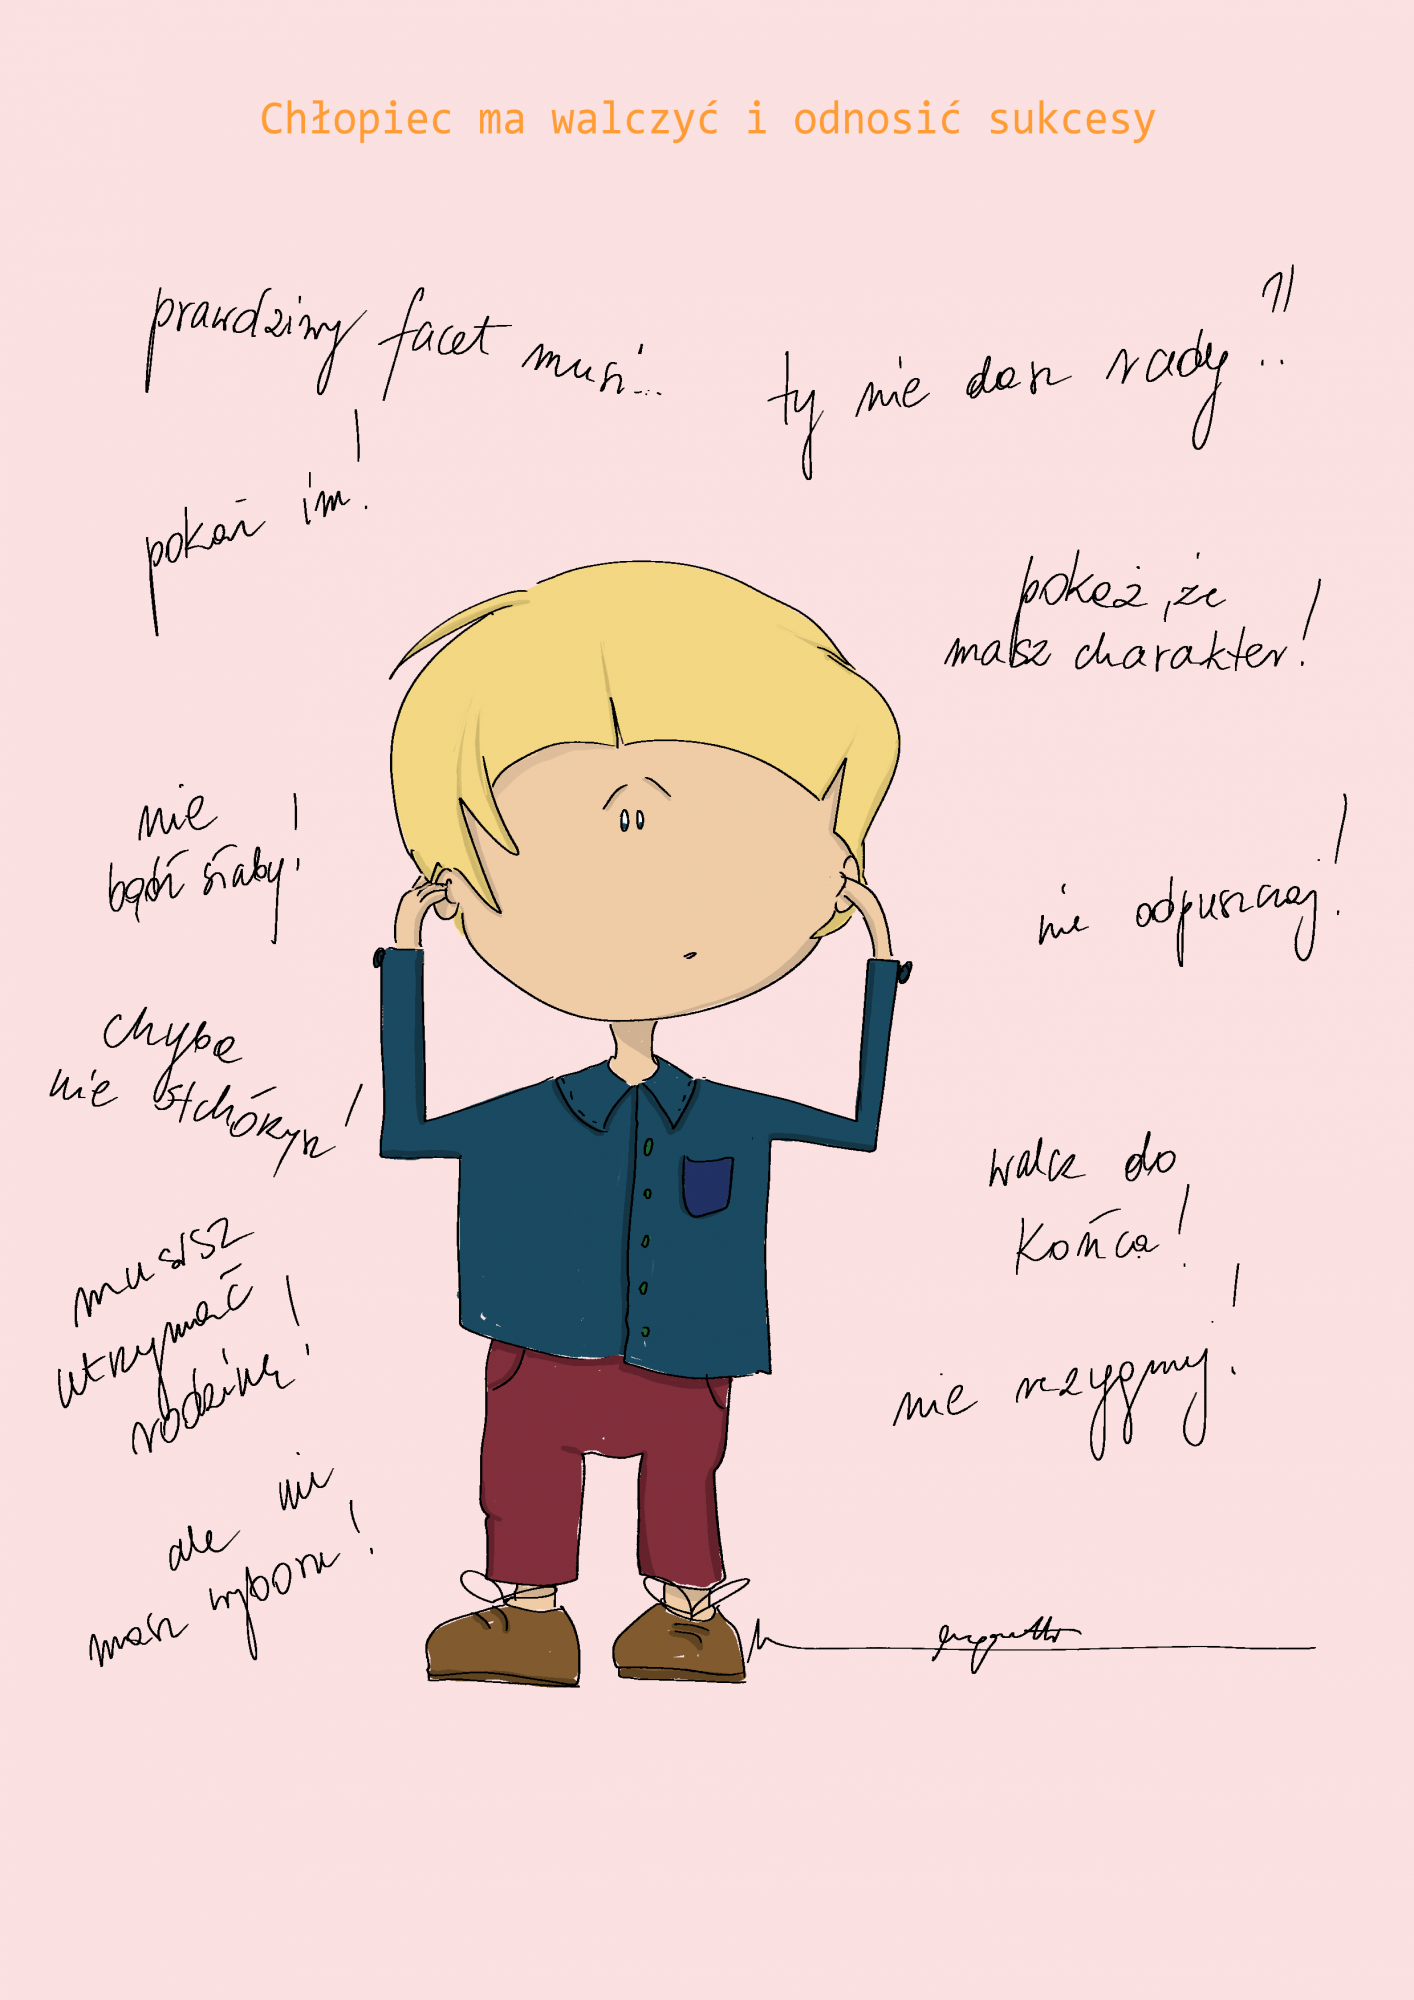 Chłopiec ma walczyć i odnosić sukcesy
prawdziwy facet musi...
ty nie dasz rady??
pokaż im!
pokaż, że
masz charakter!
nie
bądź słaby!
nie odpuszczaj!
chyba
nie stchórzysz!
walcz do
końca!
musisz
utrzymać
rodzinę!
nie rezygnuj!
ale nie
masz wyboru!